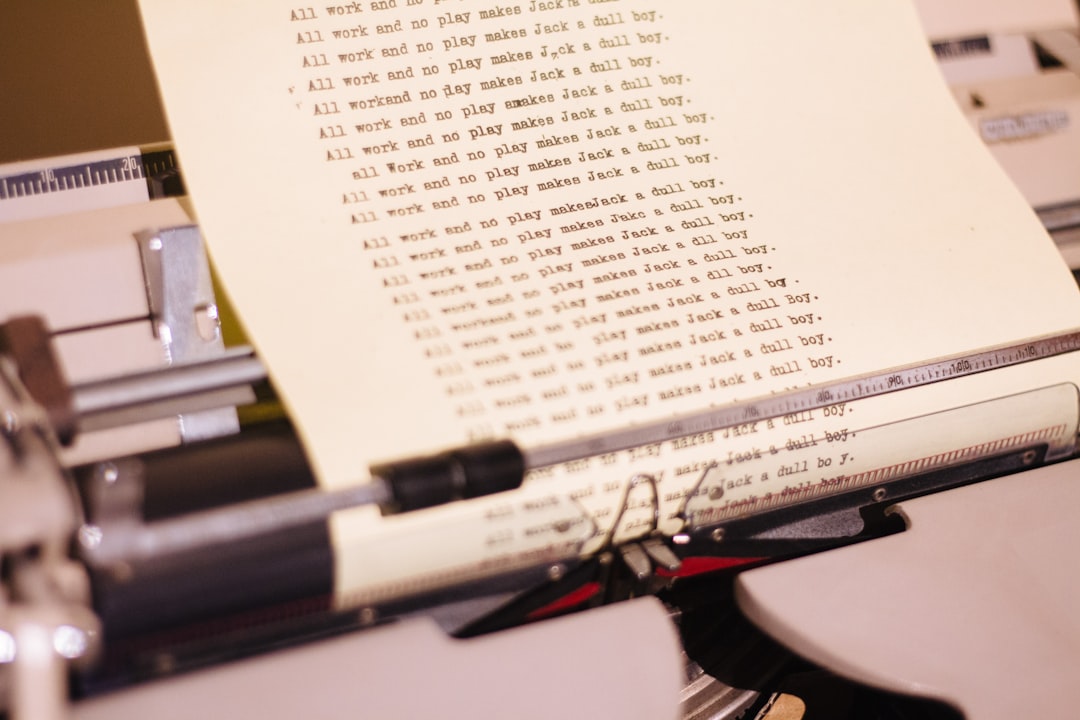 All work and no
All work and no play makes Jack a
All work and no play makes Jack a dull boy.
All work and no play makes J ck a dull boy.
All workand no play makes Jack a dull boy.
All work and no play amakes Jack a dull boy.
All work and no play makes Jack a dull boy.
all Work and no play makes Jack a dull boy.
All work and no play makes Jack a dull boy.
All work and no play makes Jack a dull boy.
All work and no play makesJack a dull boy.
All work and no play makes Jakc a dull boy.
All work and no play makes Jack a dull boy.
All work and no play makes Jack a dll boy
All work and no play makes Jack a dull boy.
All workand no play makes Jack a dll boy.
All work and no play makes Jack a dull
All work and no play makes Jack a dull Boy.
All work and no play makes Jack a dull boy.
All work and no play makes Jack a dull boy.
All work and no play makes Jack a dull boy.
makes Jack a dull boy.
makes Jack a dull boy.
Jack a dull bo y.
a dull boy.
10 20
90 100 110